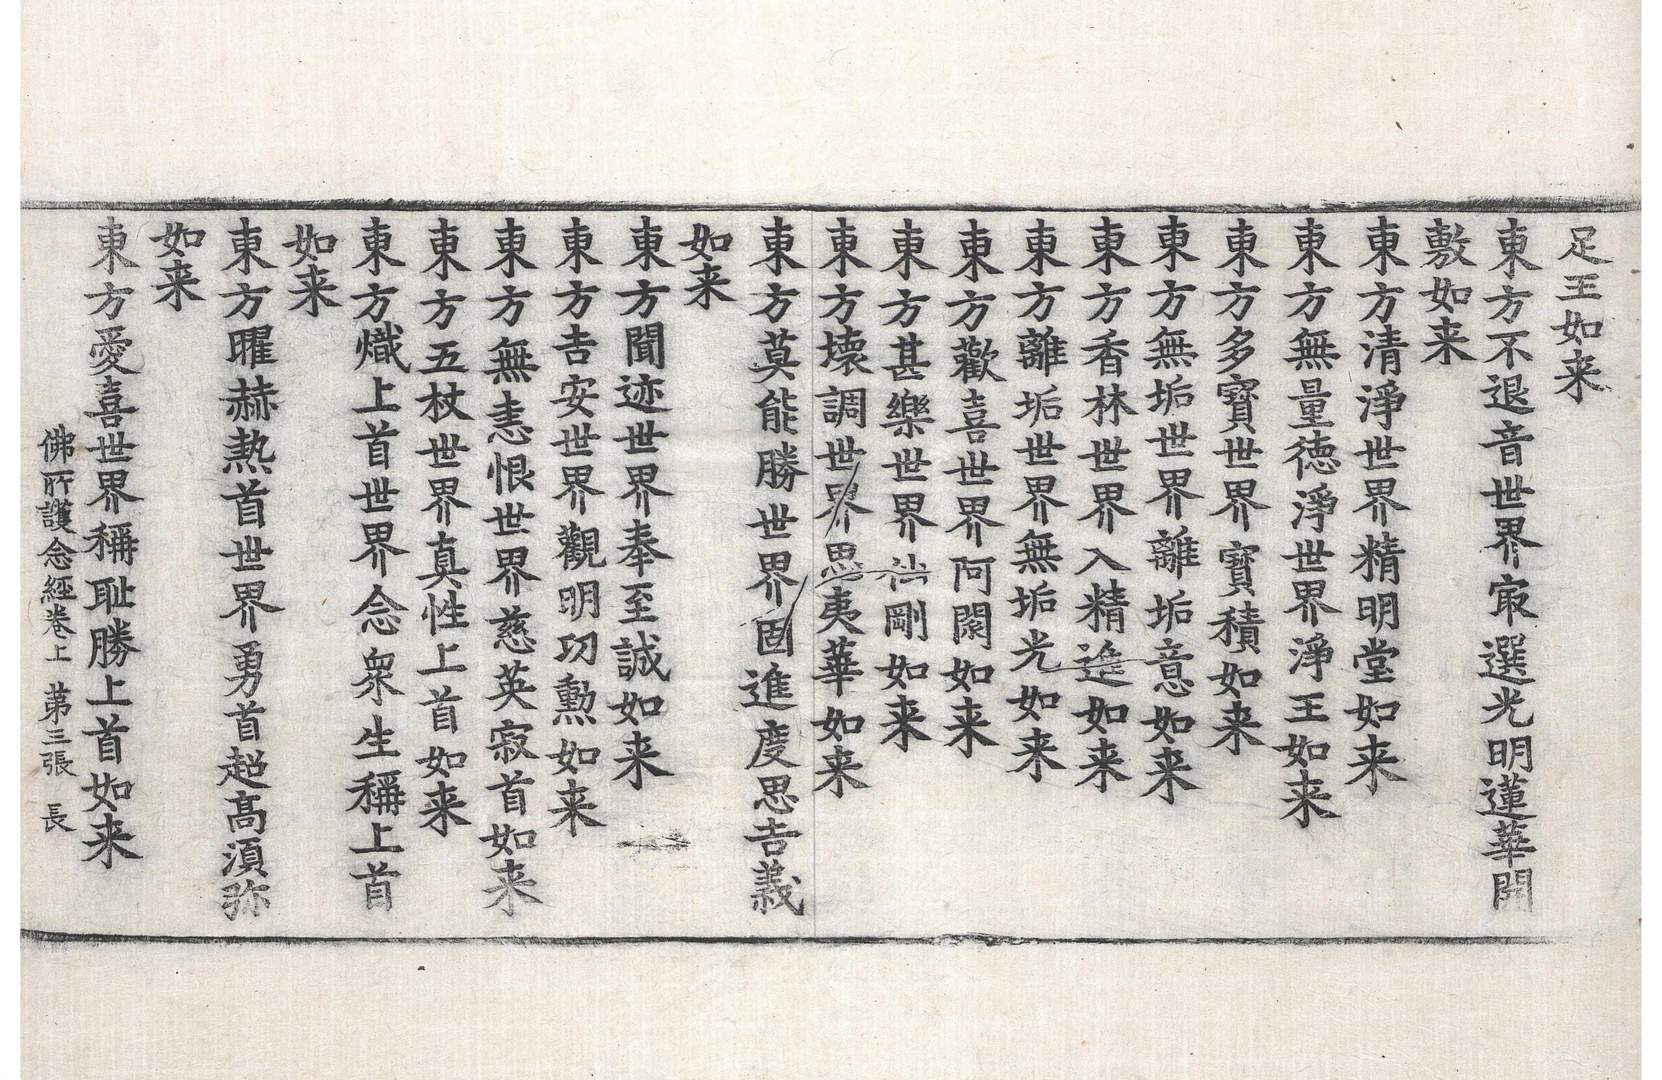 足王如来
東方不退音世界㝡選光明蓮華開
敷如来
東方清淨世界精明堂如来
東方無量徳淨世界淨王如来
東方多寶世界寶積如来
東方無垢世界離垢意如来
東方香林世界入精進如来
東方離垢世界無垢光如来
東方歡喜世界阿閦如来
東方甚樂世界仙剛如来
東方壊調世界思夷華如来
東方莫能勝世界固進度思吉義
如来
東方聞迹世界奉至誠如来
東方吉安世界觀明功勲如来
東方無恚恨世界慈英寂首如来
東方五杖世界真性上首如来
東方熾上首世界念衆生稱上首
如来
東方曜赫熱首世界勇首超髙湏弥
如来
東方愛喜世界稱耻勝上首如来
佛所護念經卷上 第三張 長